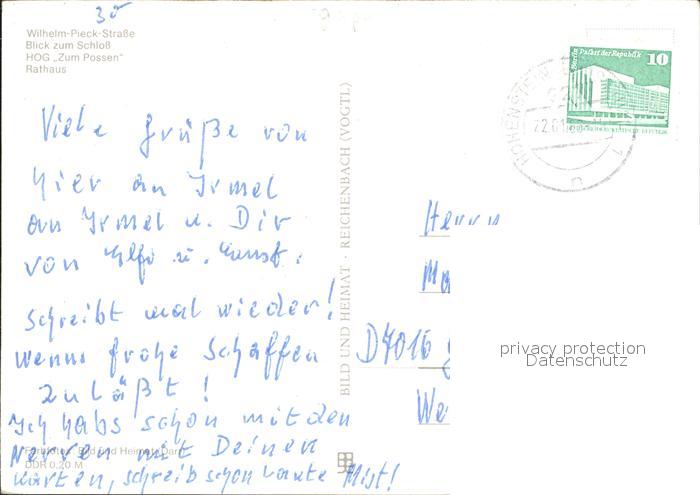 30
Wilhelm-Pieck-Straße
Blick zum Schloß
HOG „Zum Possen"
Rathaus
Viele Grüße von
hier an Irmel
an Irmel u. Dir
von u. Kunst.
Schreibt mal wieder!
wenns frohe Schaffen
zuläßt!
Ich habs schon mit den
Nerven mit Deinen
Karten, schreib schon Mist!
Bild und Heimat
DDR 0,20 M
BILD UND HEIMAT · REICHENBACH (VOGTL)
Palast der Republik
10
HOHENSTEIN
Herrn
D7016
privacy protection
Datenschutz